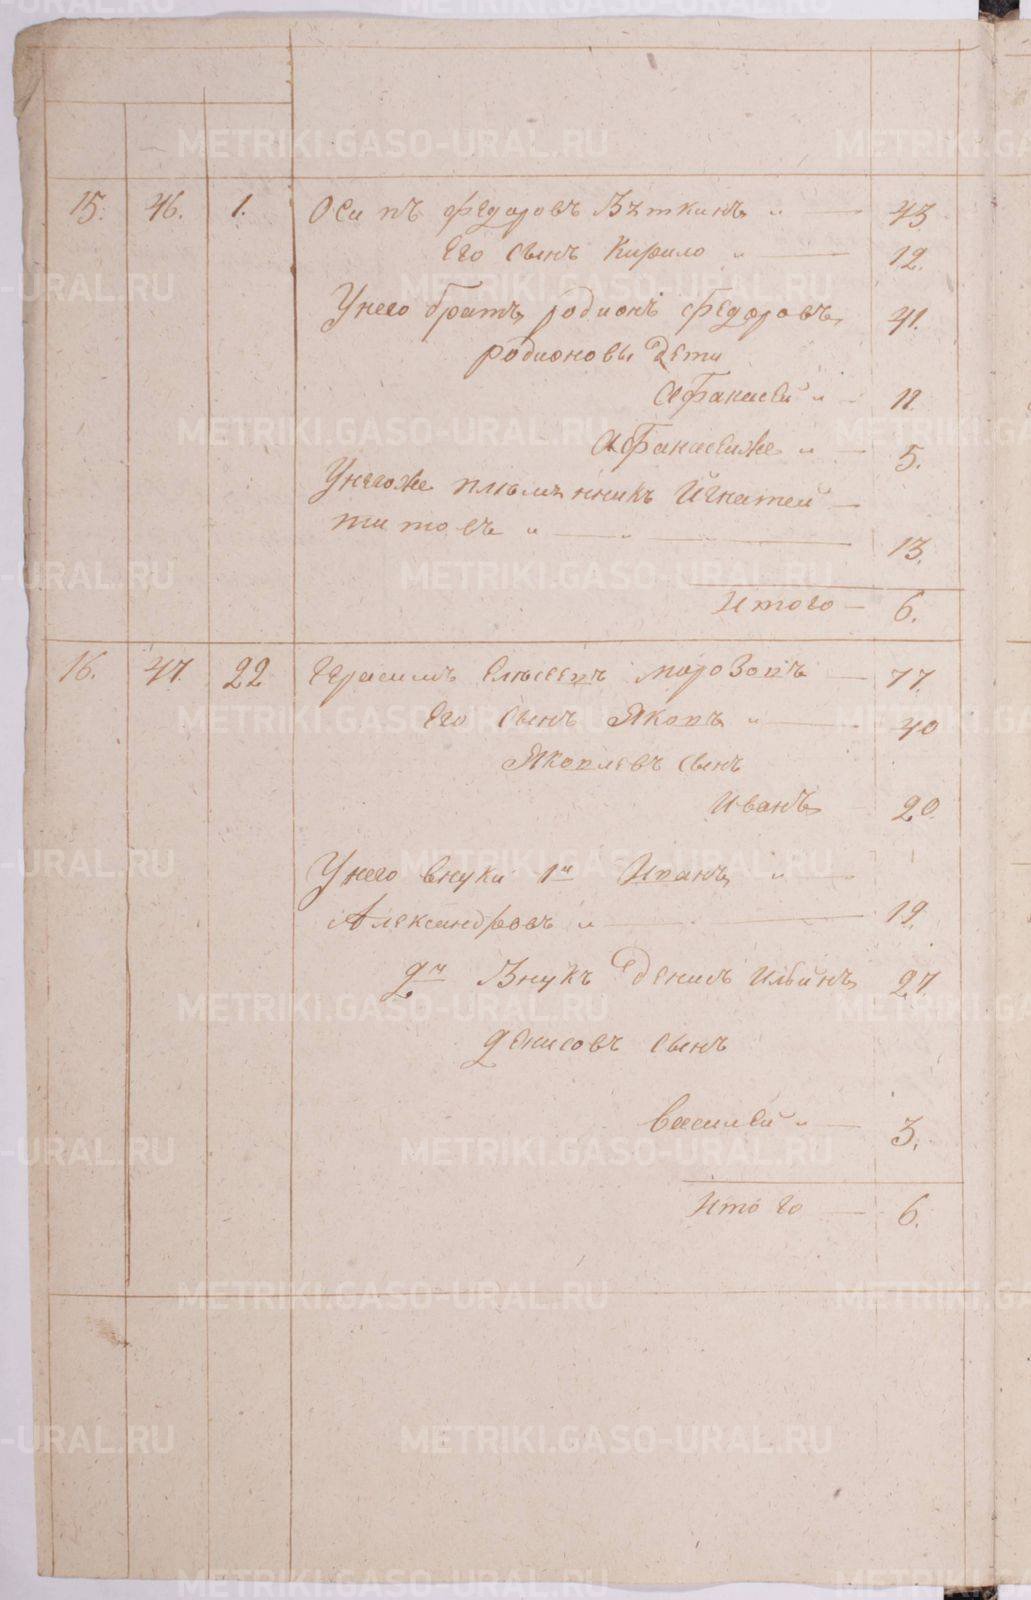 15. 46. 1. Осипъ Федоровъ Вяткинъ „ — 43
Его сынъ Кирило „ — 12.
У него братъ родионъ Федоровъ 41.
родионовы Дети
Афанасей „ — 11.
Афанасейже „ — 5.
У негоже племянникъ Игнатей —
титовъ „ — „ — 13.
Итого — 6.
16. 47. 22 Герасимъ Елисеевъ морозовъ — 77.
Его сынъ Яковъ „ — 40
Яковлевъ сынъ
Иванъ 20.
У него внуки 1й Иванъ „ —
Александровъ „ — 19.
2й Внукъ Денисъ Ильинъ 27
Денисовъ сынъ
василей „ — 3.
Итого — 6.
METRIKI.GASO-URAL.RU